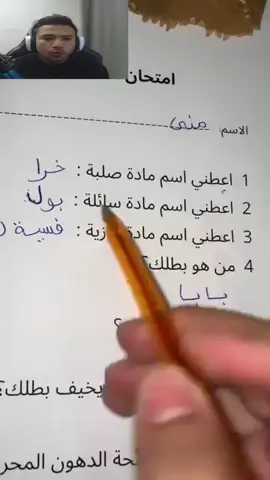 امتحان
الاسم: منى
1 اعطني اسم مادة صلبة : خرا
2 اعطني اسم مادة سائلة : بول
3 اعطني اسم مادة غازية : فسية
4 من هو بطلك؟
بابا
؟
يخيف بطلك؟
الدهون